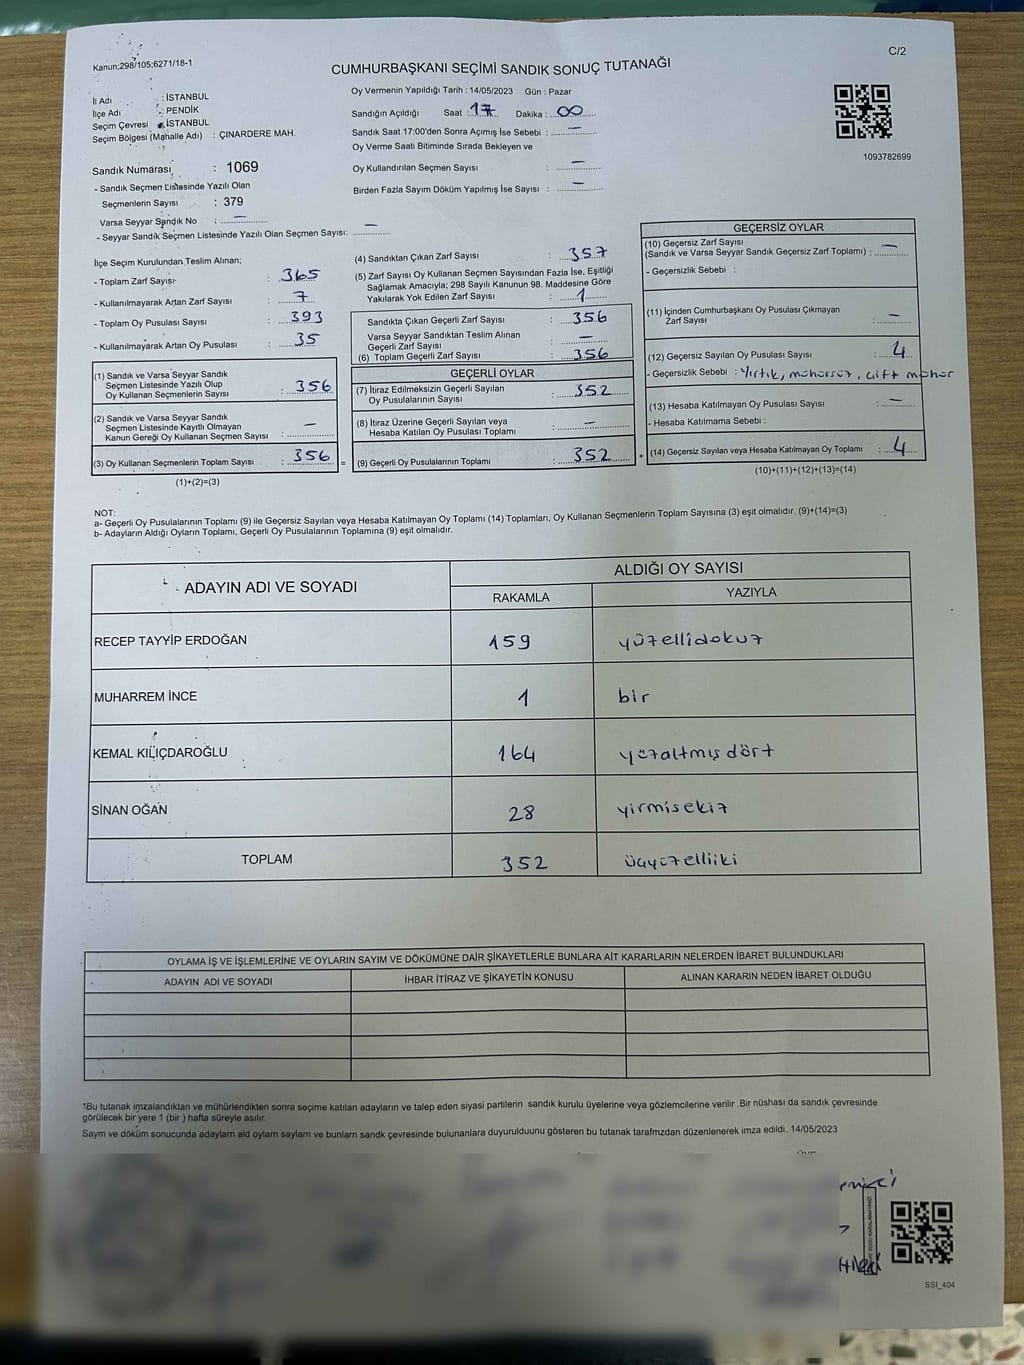 Kanun;298/105;6271/18-1
C/2
CUMHURBAŞKANI SEÇİMİ SANDIK SONUÇ TUTANAĞI
İl Adı : İSTANBUL
İlçe Adı : PENDİK
Seçim Çevresi : İSTANBUL
Seçim Bölgesi (Mahalle Adı) : ÇINARDERE MAH.
Sandık Numarası : 1069
- Sandık Seçmen Listesinde Yazılı Olan
Seçmenlerin Sayısı : 379
Varsa Seyyar Sandık No : —
- Seyyar Sandık Seçmen Listesinde Yazılı Olan Seçmen Sayısı: —
Oy Vermenin Yapıldığı Tarih : 14/05/2023 Gün : Pazar
Sandığın Açıldığı Saat : 17 Dakika : 00
Sandık Saat 17:00'den Sonra Açımış İse Sebebi : —
Oy Verme Saati Bitiminde Sırada Bekleyen ve
Oy Kullandırılan Seçmen Sayısı : —
Birden Fazla Sayım Döküm Yapılmış İse Sayısı : —
1093782699
İlçe Seçim Kurulundan Teslim Alınan;
- Toplam Zarf Sayısı : 365
- Kullanılmayarak Artan Zarf Sayısı : 7
- Toplam Oy Pusulası Sayısı : 393
- Kullanılmayarak Artan Oy Pusulası : 35
(1) Sandık ve Varsa Seyyar Sandık
Seçmen Listesinde Yazılı Olup
Oy Kullanan Seçmenlerin Sayısı : 356
(2) Sandık ve Varsa Seyyar Sandık
Seçmen Listesinde Kayıtlı Olmayan
Kanun Gereği Oy Kullanan Seçmen Sayısı : —
(3) Oy Kullanan Seçmenlerin Toplam Sayısı : 356
(1)+(2)=(3)
(4) Sandıktan Çıkan Zarf Sayısı : 357
(5) Zarf Sayısı Oy Kullanan Seçmen Sayısından Fazla İse, Eşitliği
Sağlamak Amacıyla; 298 Sayılı Kanunun 98. Maddesine Göre
Yakılarak Yok Edilen Zarf Sayısı : 1
Sandıkta Çıkan Geçerli Zarf Sayısı : 356
Varsa Seyyar Sandıktan Teslim Alınan
Geçerli Zarf Sayısı : —
(6) Toplam Geçerli Zarf Sayısı : 356
GEÇERLİ OYLAR
(7) İtiraz Edilmeksizin Geçerli Sayılan
Oy Pusulalarının Sayısı : 352
(8) İtiraz Üzerine Geçerli Sayılan veya
Hesaba Katılan Oy Pusulası Toplamı : —
= (9) Geçerli Oy Pusulalarının Toplamı : 352
GEÇERSİZ OYLAR
(10) Geçersiz Zarf Sayısı
(Sandık ve Varsa Seyyar Sandık Geçersiz Zarf Toplamı) : —
- Geçersizlik Sebebi :
(11) İçinden Cumhurbaşkanı Oy Pusulası Çıkmayan
Zarf Sayısı : —
(12) Geçersiz Sayılan Oy Pusulası Sayısı : 4
- Geçersizlik Sebebi : Yırtık, mühürsüz, çift mühür
(13) Hesaba Katılmayan Oy Pusulası Sayısı : —
- Hesaba Katılmama Sebebi :
+ (14) Geçersiz Sayılan veya Hesaba Katılmayan Oy Toplamı : 4
(10)+(11)+(12)+(13)=(14)
NOT:
a- Geçerli Oy Pusulalarının Toplamı (9) ile Geçersiz Sayılan veya Hesaba Katılmayan Oy Toplamı (14) Toplamları, Oy Kullanan Seçmenlerin Toplam Sayısına (3) eşit olmalıdır. (9)+(14)=(3)
b- Adayların Aldığı Oyların Toplamı, Geçerli Oy Pusulalarının Toplamına (9) eşit olmalıdır.
ADAYIN ADI VE SOYADI
ALDIĞI OY SAYISI
RAKAMLA YAZIYLA
RECEP TAYYİP ERDOĞAN 159 yüzellidokuz
MUHARREM İNCE 1 bir
KEMAL KILIÇDAROĞLU 164 yüzaltmış dört
SİNAN OĞAN 28 yirmisekiz
TOPLAM 352 üçyüzelliiki
OYLAMA İŞ VE İŞLEMLERİNE VE OYLARIN SAYIM VE DÖKÜMÜNE DAİR ŞİKAYETLERLE BUNLARA AİT KARARLARIN NELERDEN İBARET BULUNDUKLARI
ADAYIN ADI VE SOYADI İHBAR İTİRAZ VE ŞİKAYETİN KONUSU ALINAN KARARIN NEDEN İBARET OLDUĞU
*Bu tutanak imzalandıktan ve mühürlendikten sonra seçime katılan adayların ve talep eden siyasi partilerin sandık kurulu üyelerine veya gözlemcilerine verilir .Bir nüshası da sandık çevresinde
görülecek bir yere 1 (bir ) hafta süreyle asılır.
Saym ve döküm sonucunda adaylarn ald oylarn saylarn ve bunlarn sandk çevresinde bulunanlara duyurulduunu gösteren bu tutanak tarafmzdan düzenlenerek imza edildi. 14/05/2023
SSI_404